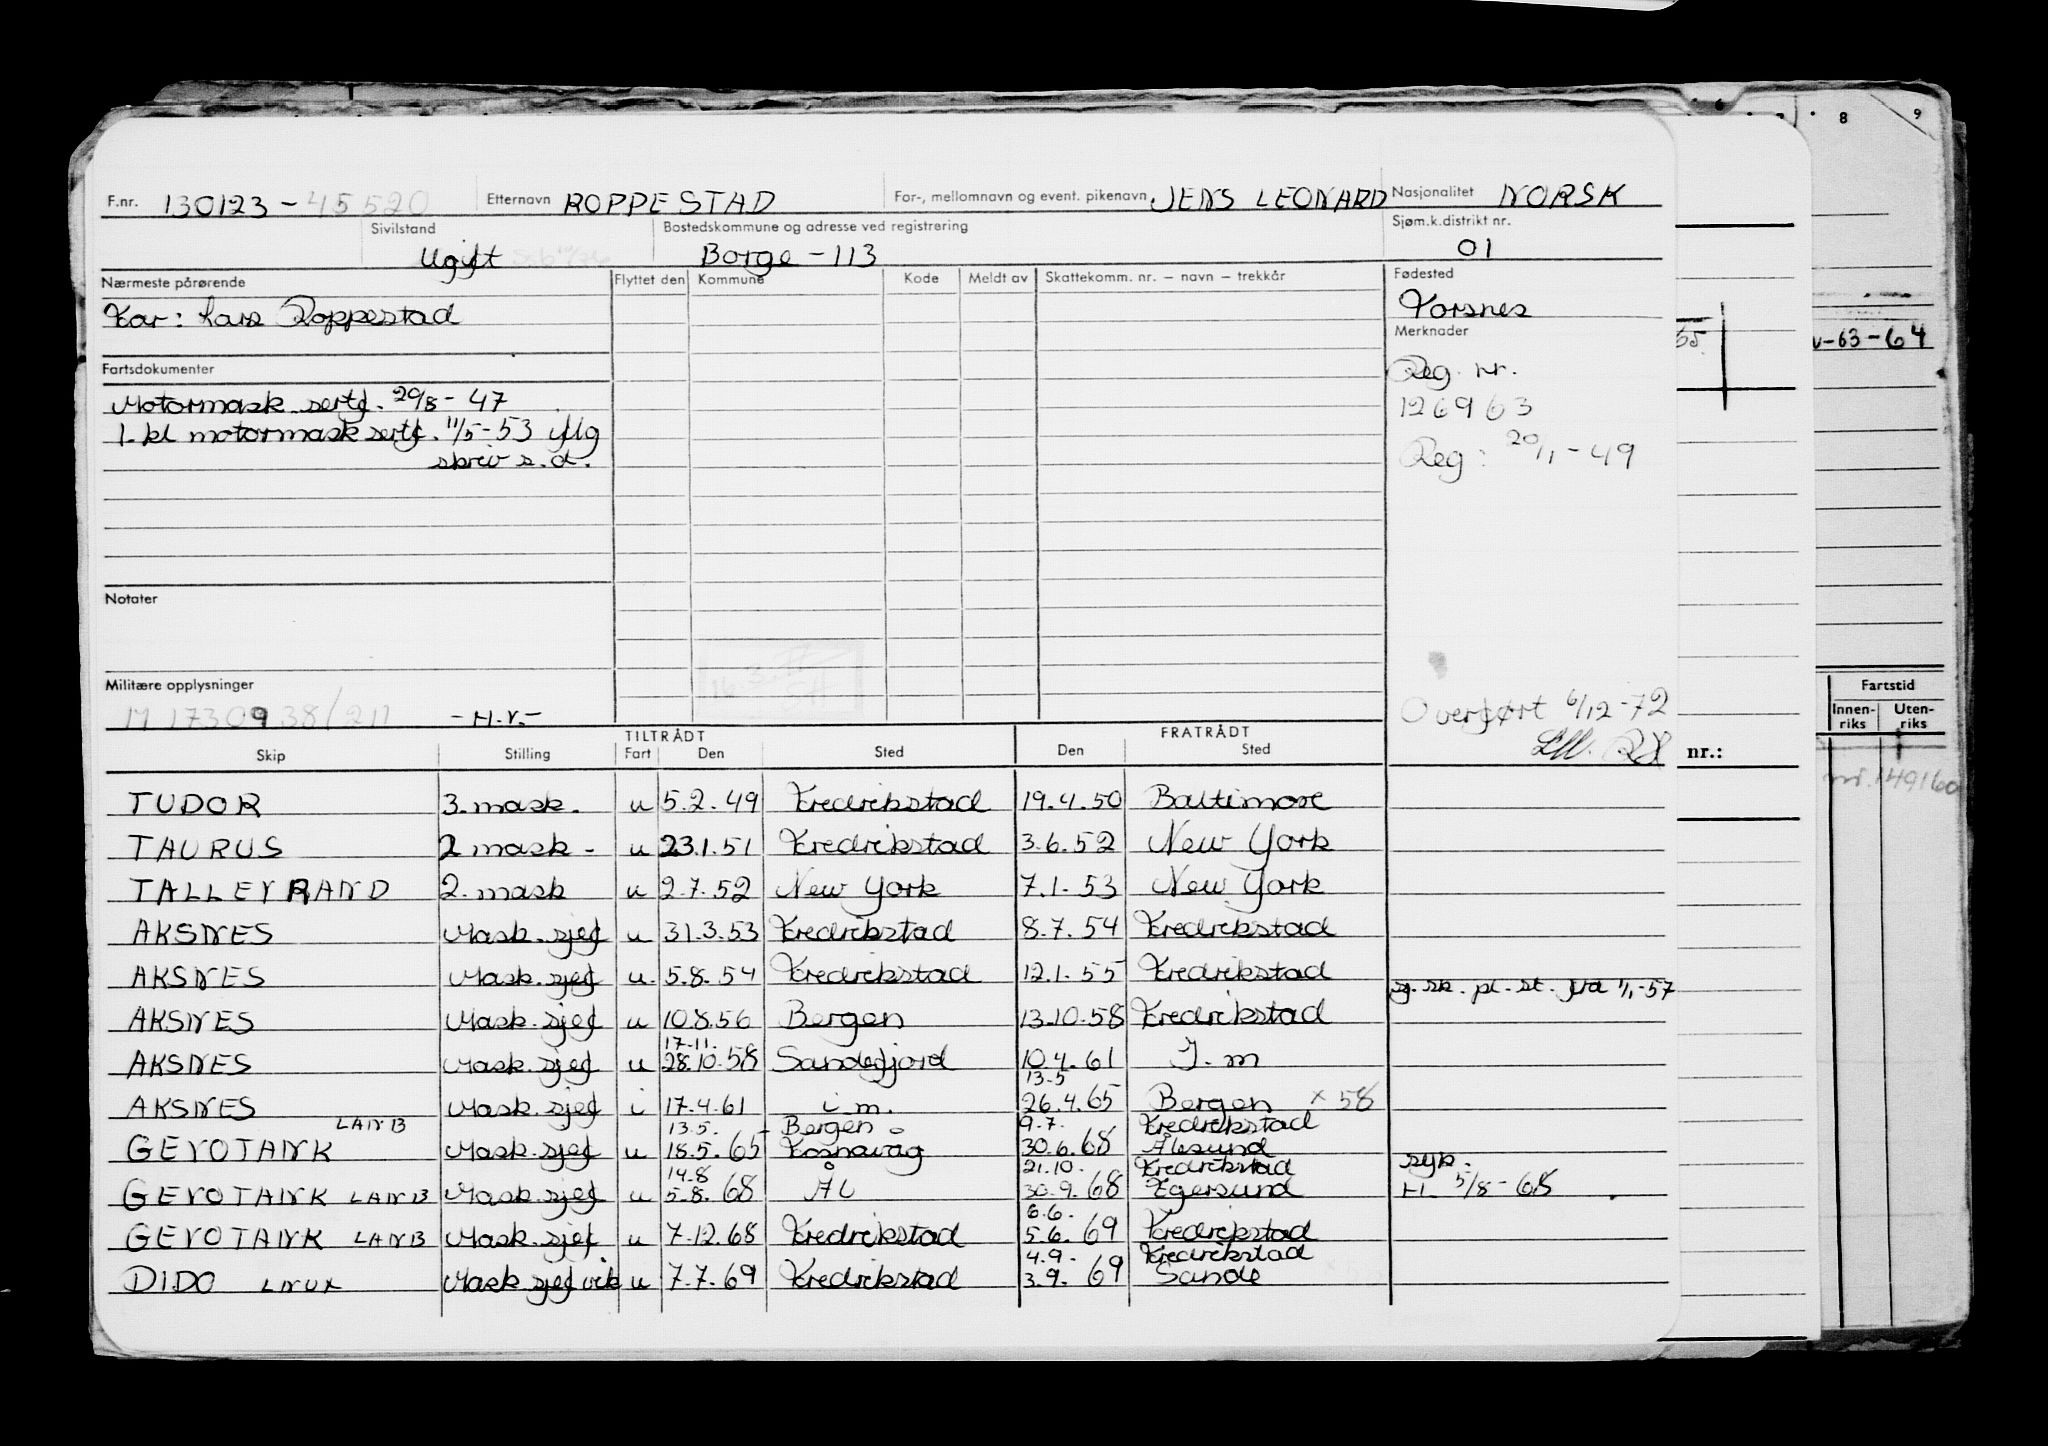 F.nr. 130123-45520 Etternavn ROPPESTAD For-, mellomnavn og event. pikenavn JENS LEONARD Nasjonalitet NORSK
Sivilstand Bostedskommune og adresse ved registrering Sjøm.k.distrikt nr.
Ugift Borge-113 01
Nærmeste pårørende Flyttet den Kommune Kode Meldt av Skattekomm. nr. – navn – trekkår Fødested
Far: Lars Roppestad Torsnes
Merknader
Fartsdokumenter Reg. nr.
Motormask sertf. 29/8-47 126963
1. kl motormask sertf. 11/5-53 iflg
skriv s.d. Reg: 20/1-49
Notater
Militære opplysninger
M 17309 38/211 -H.V.- Overført 6/12-72
TILTRÅDT FRATRÅDT
Skip Stilling Fart Den Sted Den Sted
TUDOR 3. mask. u 5.2.49 Fredrikstad 19.4.50 Baltimore
TAURUS 2 mask- u 23.1.51 Fredrikstad 3.6.52 New York
TALLEYRAND 2. mask u 2.7.52 New York 7.1.53 New York
AKSNES Mask.sjef u 31.3.53 Fredrikstad 8.7.54 Fredrikstad
AKSNES Mask.sjef u. 5.8.54 Fredrikstad 12.1.55 Fredrikstad
sj. sk. pl. st. fra 1/1-57
AKSNES Mask.sjef u 10.8.56 Bergen 13.10.58 Fredrikstad
17.11.
AKSNES Mask.sjef u 28.10.58 Sandefjord 10.4.61 I.m
13.5
AKSNES Mask.sjef i 17.4.61 i.m. 26.4.65 Bergen x 58
LANB 13.5. - Bergen - 9.7. Fredrikstad
GEVOTANK Mask.sjef u 18.5.65 Fosnavåg 30.6.68 Ålesund
14.8 21.10. Fredrikstad syk.
GEVOTANK LANB Mask.sjef u 5.8.68 Ål 30.9.68 Egersund H. 5/8-68
6.6.
GEVOTANK LANB Mask.sjef u 7.12.68 Fredrikstad 5.6.69 Fredrikstad
4.9. Fredrikstad
DIDO LNUX Mask.sjef vik u 7.7.69 Fredrikstad 3.9.69 Sande
6 7 8 9
65.
-63-64
Fartstid
Innen-riks Uten-riks
nr.:
nr. 149160